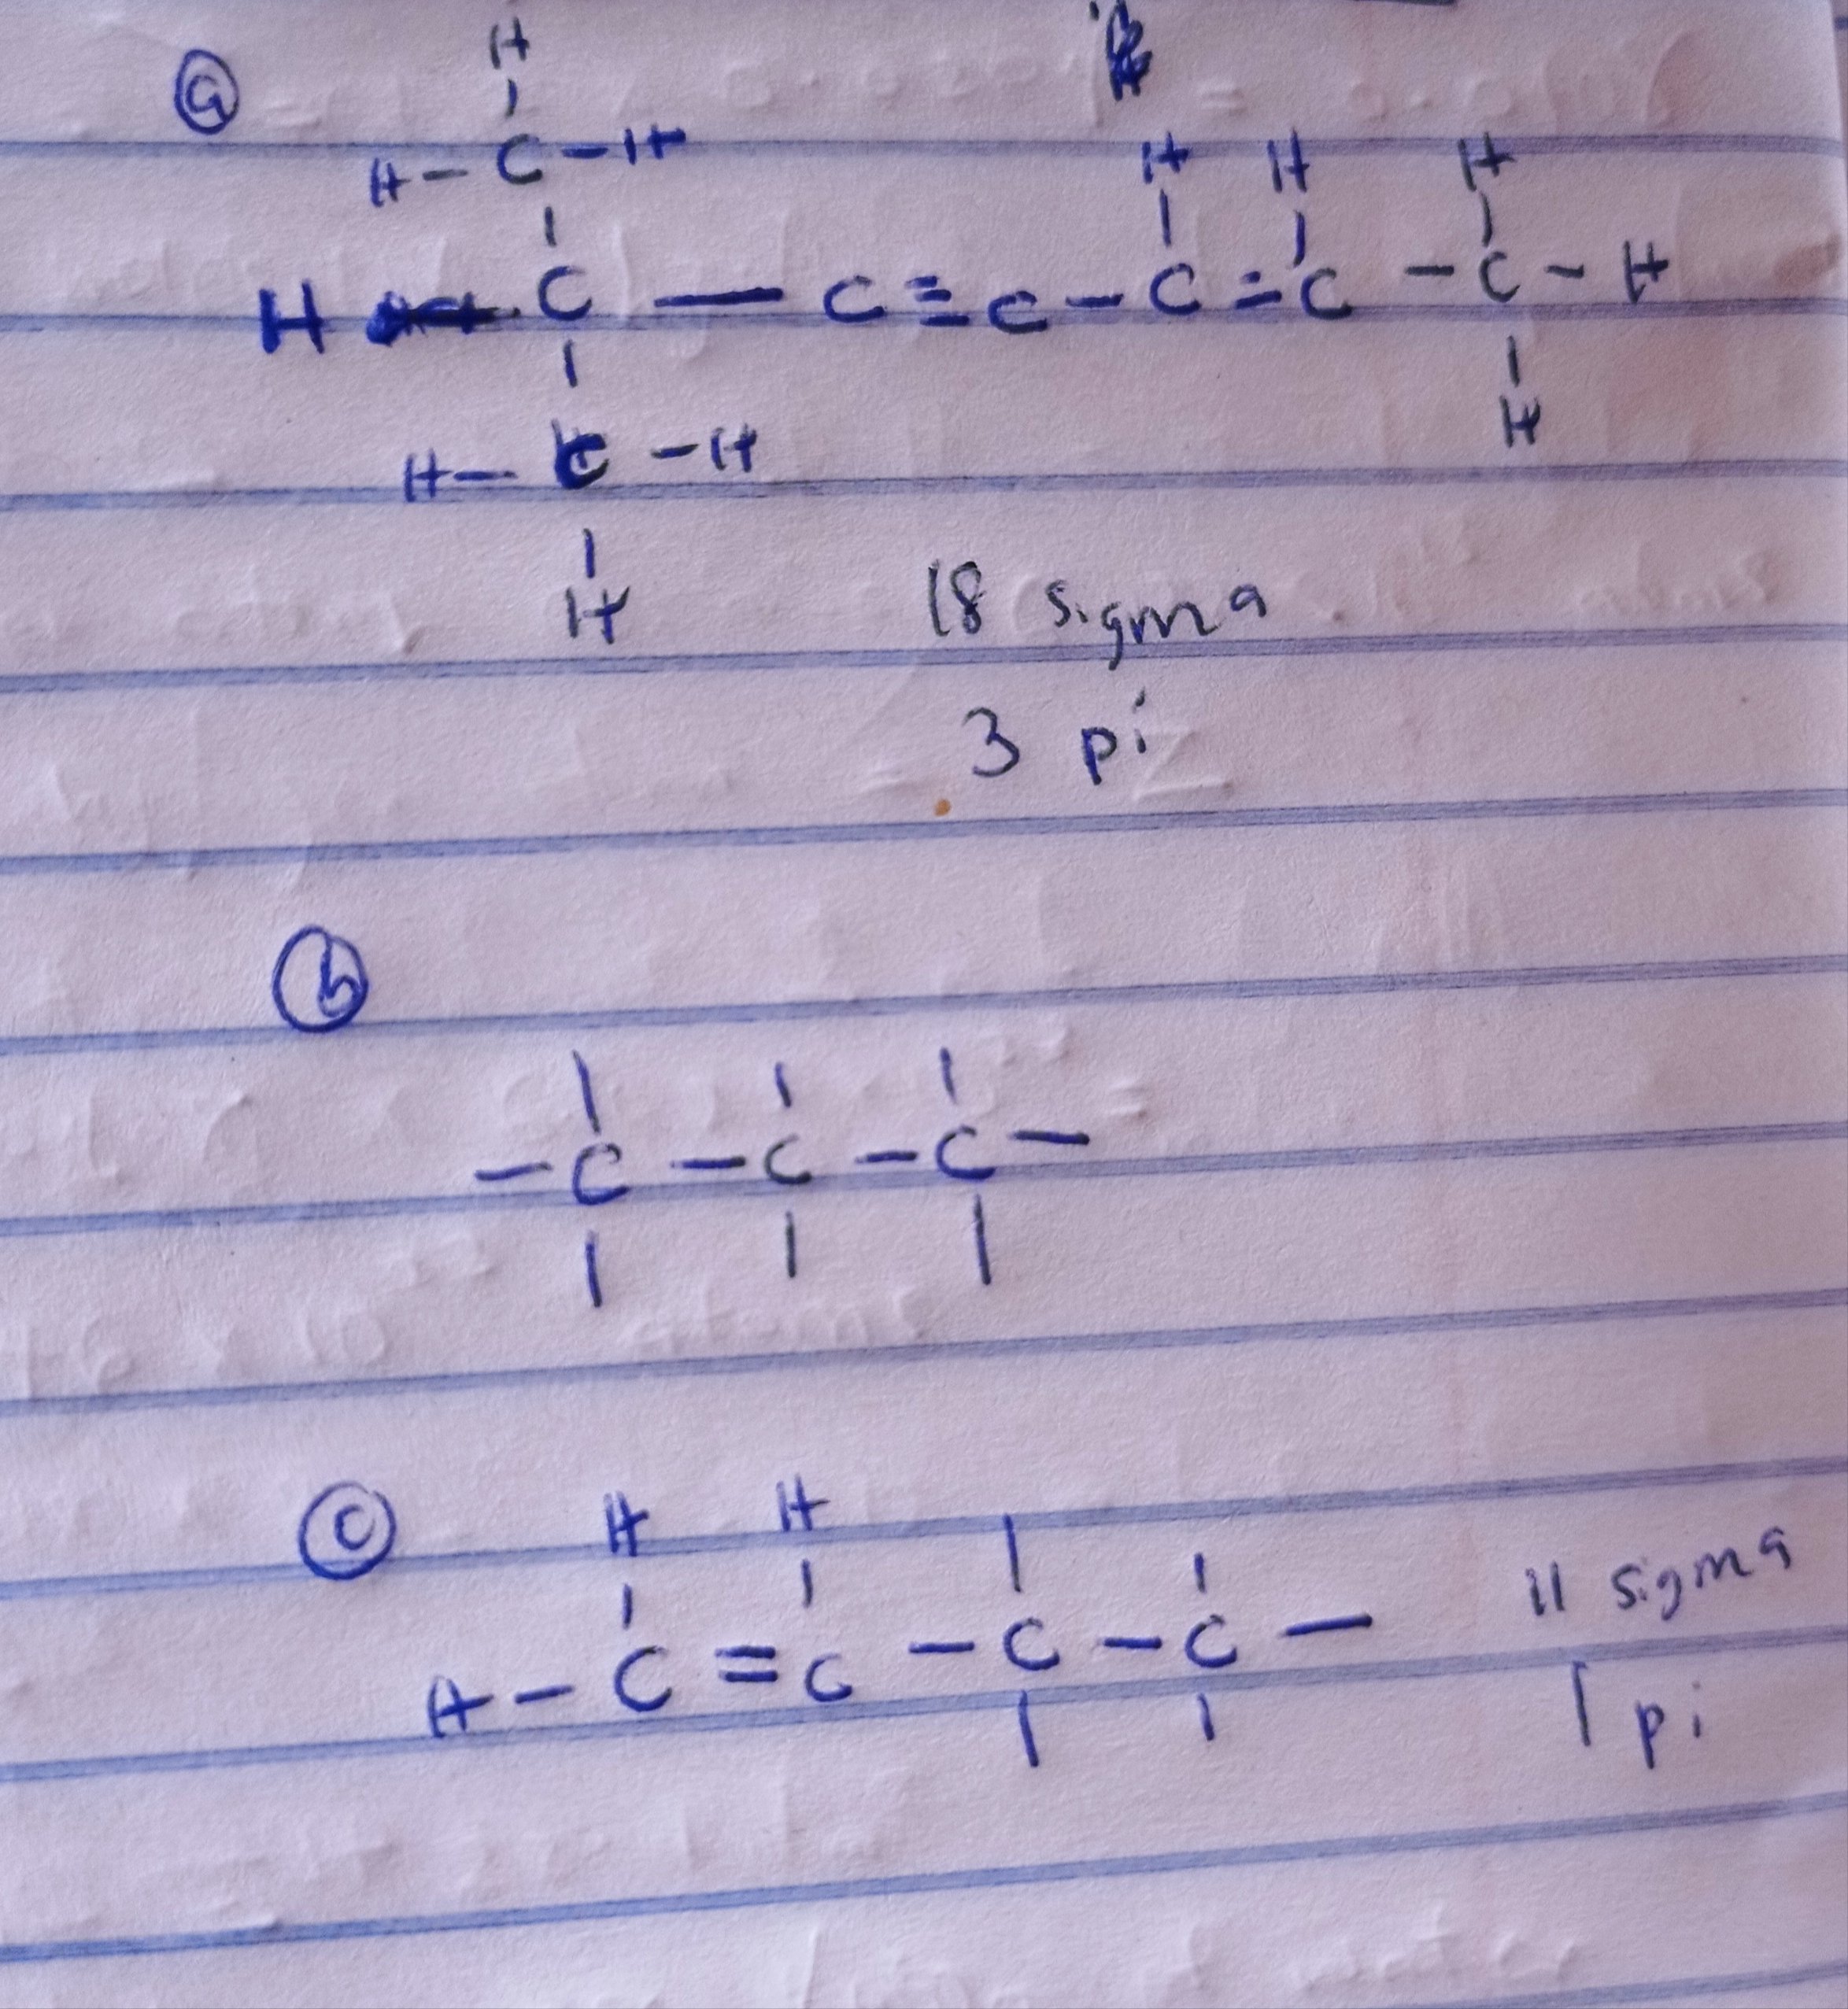 a
H
H - C - H
H H H
H - C — C ≡ C - C = C - C - H
H
H - C - H
H
18 sigma
3 pi
b
- C - C - C -
c
H H
H - C = C - C - C -
11 sigma
1 pi